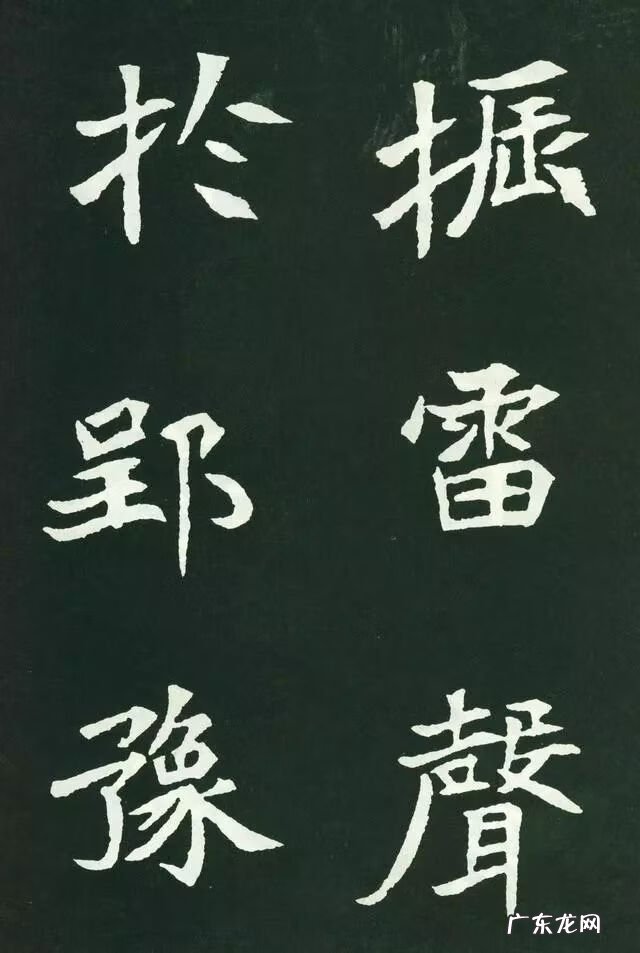 振雷聲
於郢豫
广东龙网